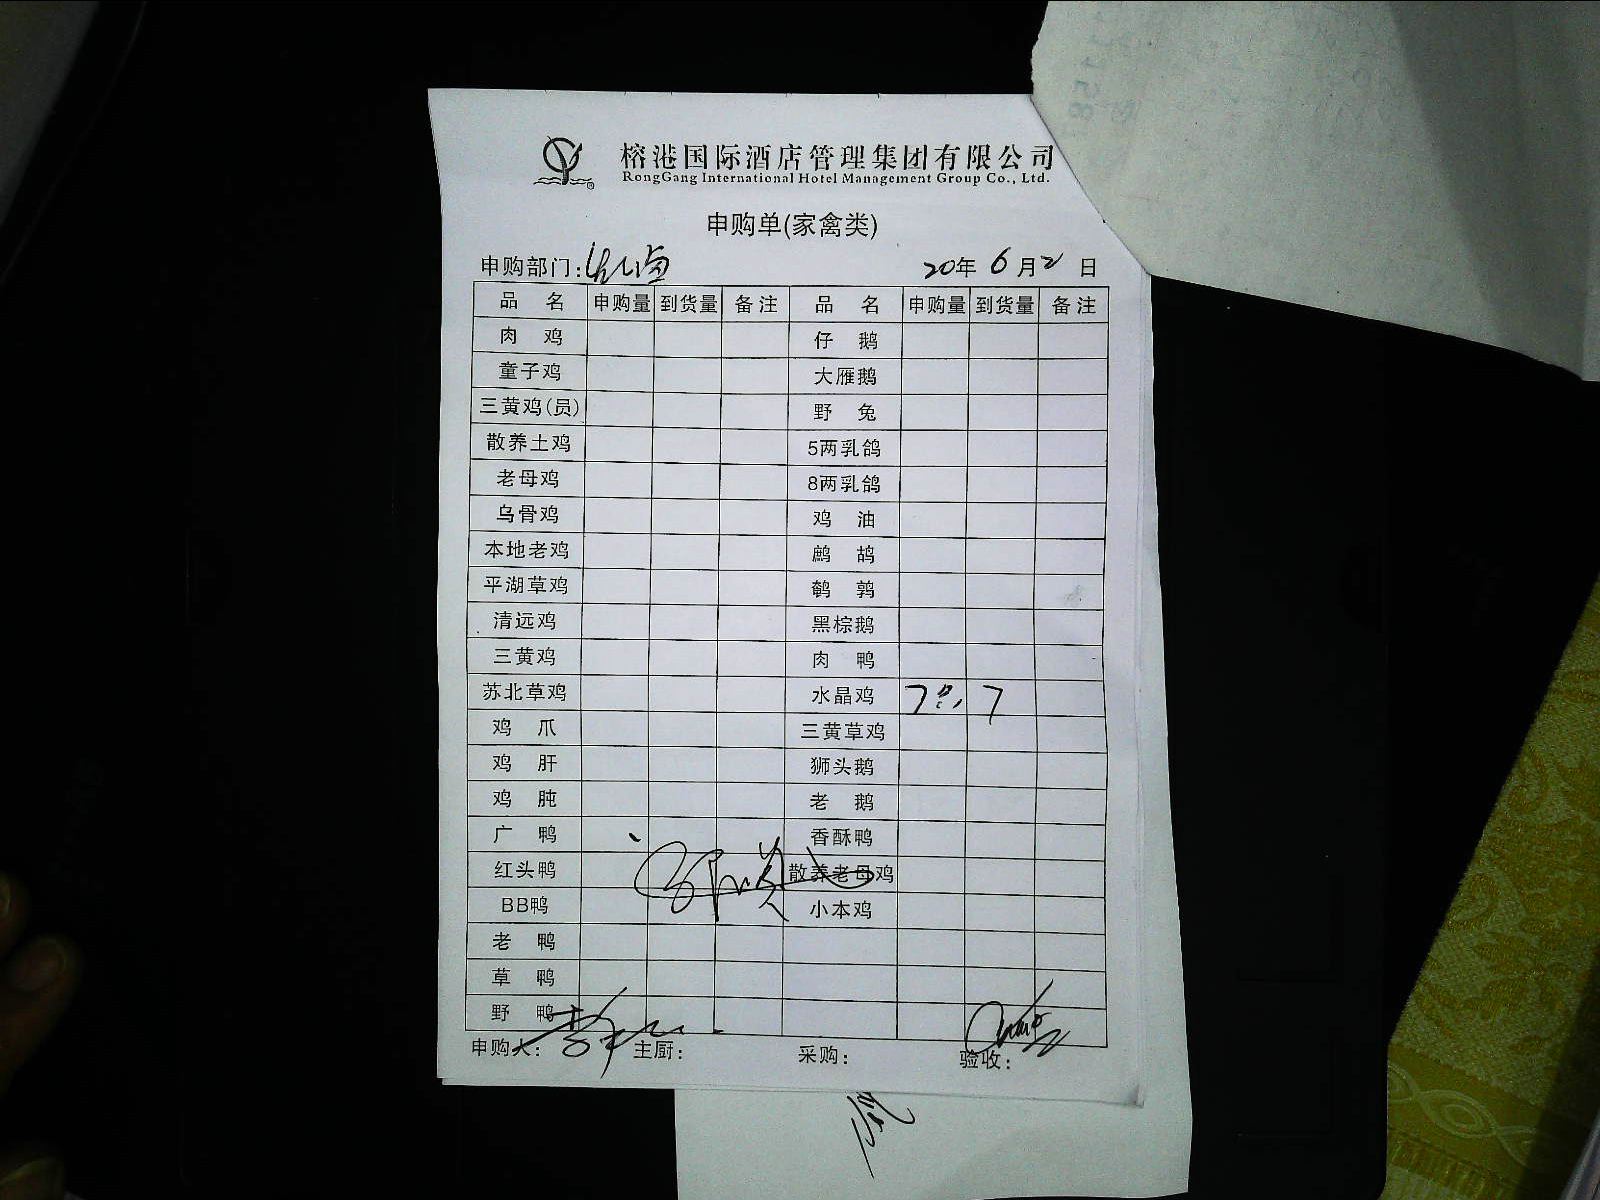 榕港国际酒店管理集团有限公司
RongGang International Hotel Management Group Co., Ltd.
申购单(家禽类)
申购部门: 20年 6月2日
品 名 申购量 到货量 备注 品 名 申购量 到货量 备注
肉 鸡 仔 鹅
童子鸡 大雁鹅
三黄鸡(员) 野 兔
散养土鸡 5两乳鸽
老母鸡 8两乳鸽
乌骨鸡 鸡 油
本地老鸡 鹧 鸪
平湖草鸡 鹌 鹑
清远鸡 黑棕鹅
三黄鸡 肉 鸭
苏北草鸡 水晶鸡 7 7
鸡 爪 三黄草鸡
鸡 肝 狮头鹅
鸡 肫 老 鹅
广 鸭 香酥鸭
红头鸭 散养老母鸡
BB鸭 小本鸡
老 鸭
草 鸭
野 鸭
申购人: 主厨: 采购: 验收: